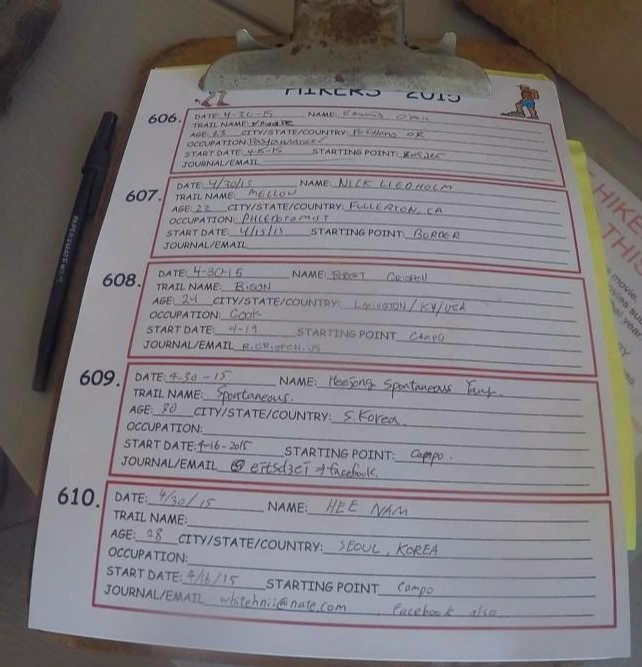 HIKERS - 2015
606. DATE: 4-30-15 NAME: Edward
TRAIL NAME:
AGE: 63 CITY/STATE/COUNTRY: OR
OCCUPATION:
START DATE: 4-15-15 STARTING POINT: Border
JOURNAL/EMAIL
607. DATE: 4/30/15 NAME: NICK LIEDHOLM
TRAIL NAME: MELLOW
AGE: 22 CITY/STATE/COUNTRY: FULLERTON, CA
OCCUPATION: PHLEBOTOMIST
START DATE: 4/15/15 STARTING POINT: BORDER
JOURNAL/EMAIL
608. DATE: 4-30-15 NAME: ROBERT
TRAIL NAME: BISON
AGE: 24 CITY/STATE/COUNTRY: LEXINGTON/KY/USA
OCCUPATION: Cook
START DATE: 4-19 STARTING POINT CAMPO
JOURNAL/EMAIL
609. DATE: 4-30-15 NAME: Heejong Spontaneous
TRAIL NAME: Spontaneous.
AGE: 30 CITY/STATE/COUNTRY: S.Korea.
OCCUPATION:
START DATE: 4-16-2015 STARTING POINT: Campo.
JOURNAL/EMAIL facebook.
610. DATE: 4/30/15 NAME: HEE NAM
TRAIL NAME:
AGE: 28 CITY/STATE/COUNTRY: SEOUL, KOREA
OCCUPATION:
START DATE: 4/16/15 STARTING POINT Campo
JOURNAL/EMAIL whitehnii@nate.com, Facebook also
HIKE
THIS
moving
year
PAPERMATE